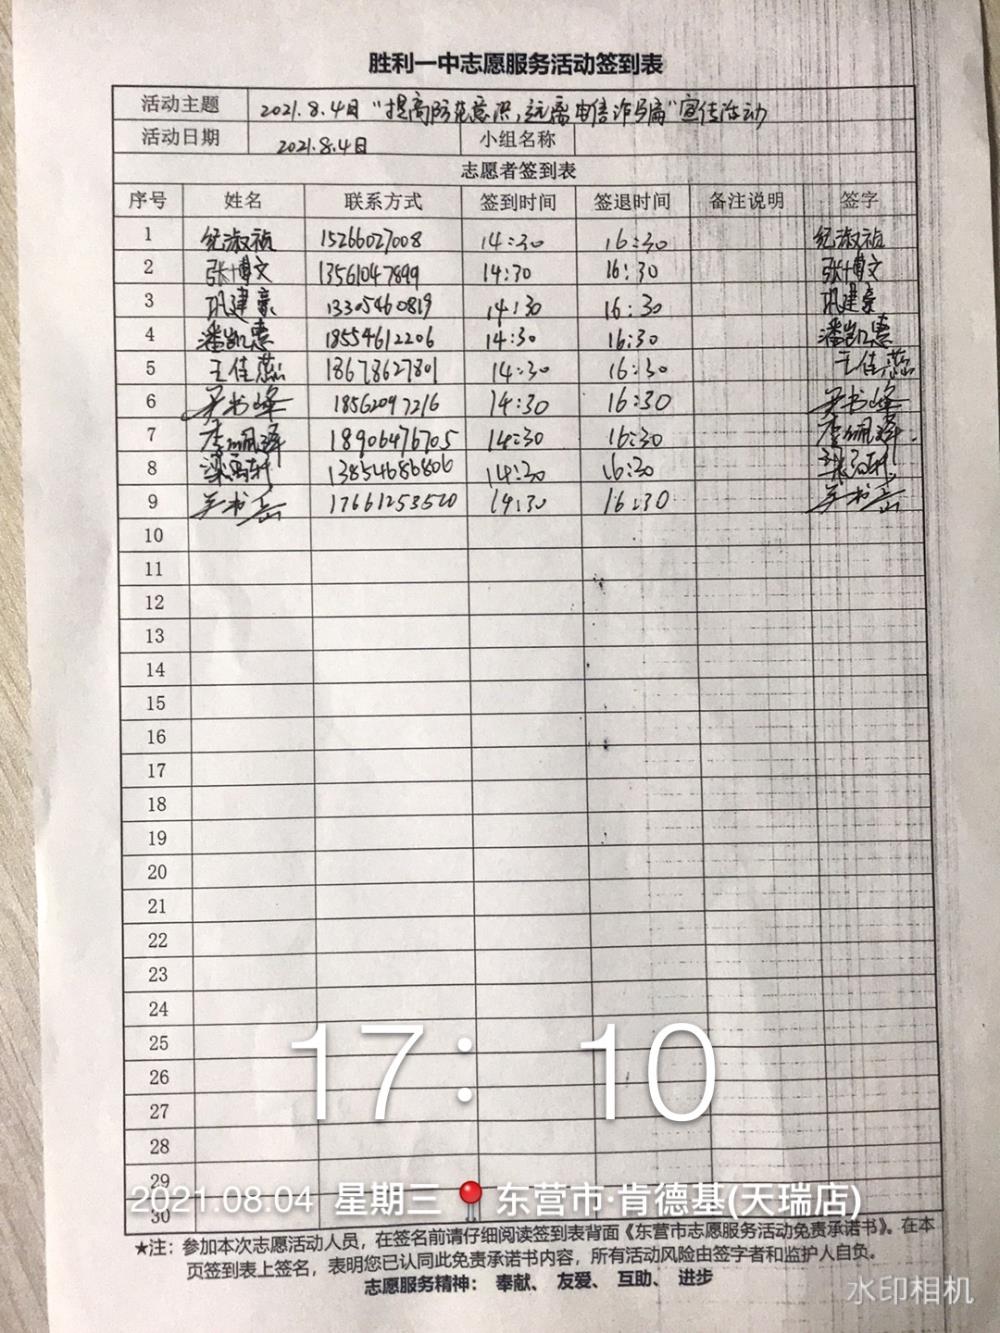 胜利一中志愿服务活动签到表
活动主题 2021.8.4日“提高防范意识,远离电信诈骗”宣传活动
活动日期 2021.8.4日 小组名称
志愿者签到表
序号 姓名 联系方式 签到时间 签退时间 备注说明 签字
1 纪淑祯 15266027008 14:30 16:30 纪淑祯
2 张博文 13561047899 14:30 16:30 张博文
3 巩建豪 13305460819 14:30 16:30 巩建豪
4 潘凯惠 18554612206 14:30 16:30 潘凯惠
5 王佳蕊 18678627801 14:30 16:30 王佳蕊
6 书峰 18562097216 14:30 16:30 书峰
7 李佩泽 18906476705 14:30 16:30 李佩泽
8 13854686806 14:30 16:30
9 书岳 17661253520 14:30 16:30 书岳
10
11
12
13
14
15
16
17
18
19
20
21
22
23
24
25
26
27
28
29
30
17:10
2021.08.04 星期三 东营市·肯德基(天瑞店)
★注：参加本次志愿活动人员，在签名前请仔细阅读签到表背面《东营市志愿服务活动免责承诺书》。在本
页签到表上签名，表明您已认同此免责承诺书内容，所有活动风险由签字者和监护人自负。
志愿服务精神： 奉献、 友爱、 互助、 进步
水印相机